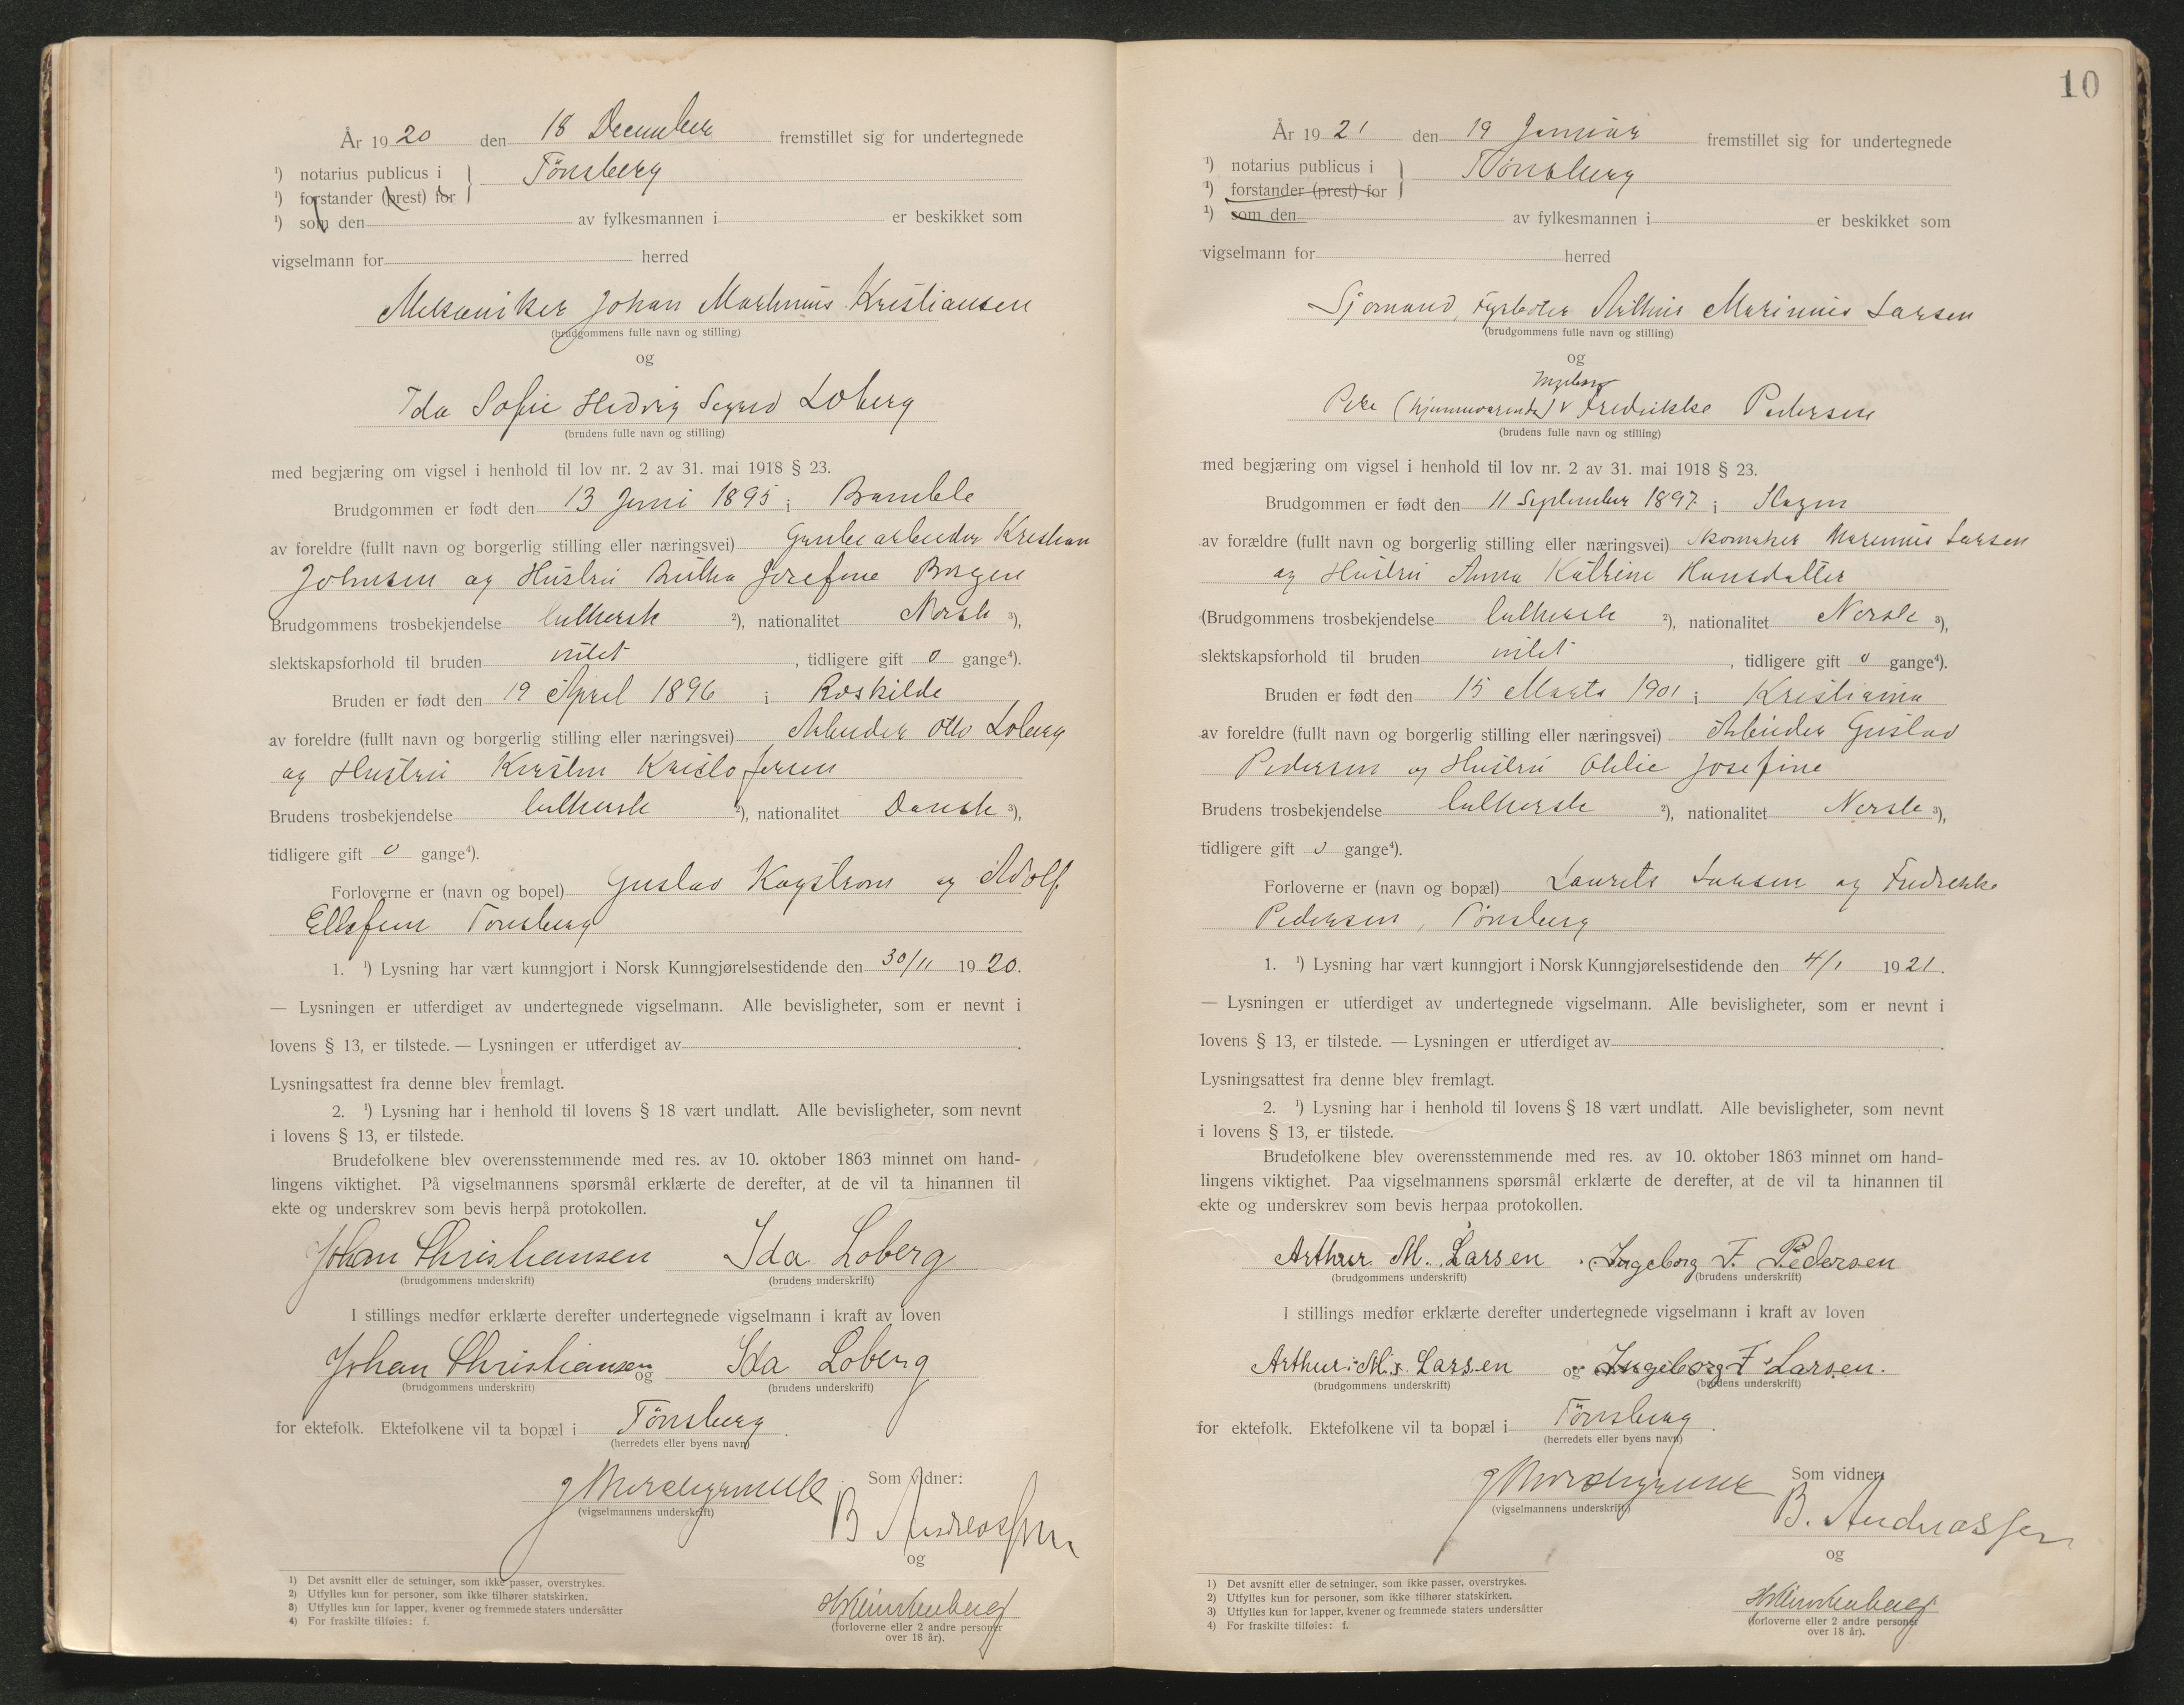 År 1920 den 18 December fremstillet sig for undertegnede
¹) notarius publicus i } Tönsberg
¹) forstander (prest) for
¹) som den av fylkesmannen i er beskikket som
vigselmann for herred
Mekaniker Johan Marhinus Kristiansen
(brudgommens fulle navn og stilling)
og
Ida Sofie Hedvig Sigrid Loberg
(brudens fulle navn og stilling)
med begjæring om vigsel i henhold til lov nr. 2 av 31. mai 1918 § 23.
Brudgommen er født den 13 Juni 1895 i Bamble
av foreldre (fullt navn og borgerlig stilling eller næringsvei) Grubearbeider Kristian
Johnsen og Hustru Josefine Borgen
Brudgommens trosbekjendelse luthersk ²), nationalitet Norsk ³),
slektskapsforhold til bruden intet , tidligere gift 0 gange⁴).
Bruden er født den 19 April 1896 i Roskilde
av foreldre (fullt navn og borgerlig stilling eller næringsvei) Arbeider Otto Loberg
og Hustru Kirsten Kristofersen
Brudens trosbekjendelse luthersk ²), nationalitet Dansk ³),
tidligere gift 0 gange⁴).
Forloverne er (navn og bopel) Gustav Kagstrom og Adolf
Ellefsen Tönsberg
1. ¹) Lysning har vært kunngjort i Norsk Kunngjørelsestidende den 30/11 1920.
— Lysningen er utferdiget av undertegnede vigselmann. Alle bevisligheter, som er nevnt i
lovens § 13, er tilstede. — Lysningen er utferdiget av .
Lysningsattest fra denne blev fremlagt.
2. ¹) Lysning har i henhold til lovens § 18 vært undlatt. Alle bevisligheter, som nevnt
i lovens § 13, er tilstede.
Brudefolkene blev overensstemmende med res. av 10. oktober 1863 minnet om hand-
lingens viktighet. På vigselmannens spørsmål erklærte de derefter, at de vil ta hinannen til
ekte og underskrev som bevis herpå protokollen.
Johan Christiansen Ida Loberg
(brudgommens underskrift) (brudens underskrift)
I stillings medfør erklærte derefter undertegnede vigselmann i kraft av loven
Johan Christiansen og Ida Loberg
(brudgommens underskrift) (brudens underskrift)
for ektefolk. Ektefolkene vil ta bopæl i Tönsberg .
(herredets eller byens navn)
Som vidner:
(vigselmannens underskrift)
B Andreassen
og
(forloverne eller 2 andre personer
over 18 år).
1) Det avsnitt eller de setninger, som ikke passer, overstrykes.
2) Utfylles kun for personer, som ikke tilhører statskirken.
3) Utfylles kun for lapper, kvener og fremmede staters undersåtter
4) For fraskilte tilføies: f.
10
År 1921 den 19 Januar fremstillet sig for undertegnede
¹) notarius publicus i } Tönsberg
¹) forstander (prest) for
¹) som den av fylkesmannen i er beskikket som
vigselmann for herred
Sjömand, Fyrböter Arthur Marinius Larsen
(brudgommens fulle navn og stilling)
og
Ingeborg
Pike (hjemmeværende) v Fredrikke Pedersen
(brudens fulle navn og stilling)
med begjæring om vigsel i henhold til lov nr. 2 av 31. mai 1918 § 23.
Brudgommen er født den 11 September 1897 i Slagen
av forældre (fullt navn og borgerlig stilling eller næringsvei) Skomaker Marinius Larsen
og Hustru Anna Katrine Hansdatter
(Brudgommens trosbekjendelse luthersk ²), nationalitet Norsk ³),
slektskapsforhold til bruden intet , tidligere gift 0 gange⁴).
Bruden er født den 15 Marts 1901 i Kristiania
av foreldre (fullt navn og borgerlig stilling eller næringsvei) Arbeider Gustav
Pedersen og Hustru Josefine
Brudens trosbekjendelse luthersk ²), nationalitet Norsk ³),
tidligere gift 0 gange⁴).
Forloverne er (navn og bopæl) Laurits Larsen og Fredrikke
Pedersen, Tönsberg
1. ¹) Lysning har vært kunngjort i Norsk Kunngjørelsestidende den 4/1 1921.
— Lysningen er utferdiget av undertegnede vigselmann. Alle bevisligheter, som er nevnt i
lovens § 13, er tilstede. — Lysningen er utferdiget av .
Lysningsattest fra denne blev fremlagt.
2. ¹) Lysning har i henhold til lovens § 18 vært undlatt. Alle bevisligheter, som nevnt
i lovens § 13, er tilstede.
Brudefolkene blev overensstemmende med res. av 10. oktober 1863 minnet om hand-
lingens viktighet. Paa vigselmannens spørsmål erklærte de derefter, at de vil ta hinannen til
ekte og underskrev som bevis herpaa protokollen.
Arthur M. Larsen Ingeborg F. Pedersen
(brudgommens underskrift) (brudens underskrift)
I stillings medfør erklærte derefter undertegnede vigselmann i kraft av loven
Arthur M. Larsen og Ingeborg F Larsen.
(brudgommens underskrift) (brudens underskrift)
for ektefolk. Ektefolkene vil ta bopæl i Tönsberg .
(herredets eller byens navn)
Som vidner:
(vigselmannens underskrift)
B. Andreassen
og
(forloverne eller 2 andre personer
over 18 år).
1) Det avsnitt eller de setninger, som ikke passer, overstrykes.
2) Utfylles kun for personer, som ikke tilhører statskirken.
3) Utfylles kun for lapper, kvener og fremmede staters undersåtter
4) For fraskilte tilføies: f.